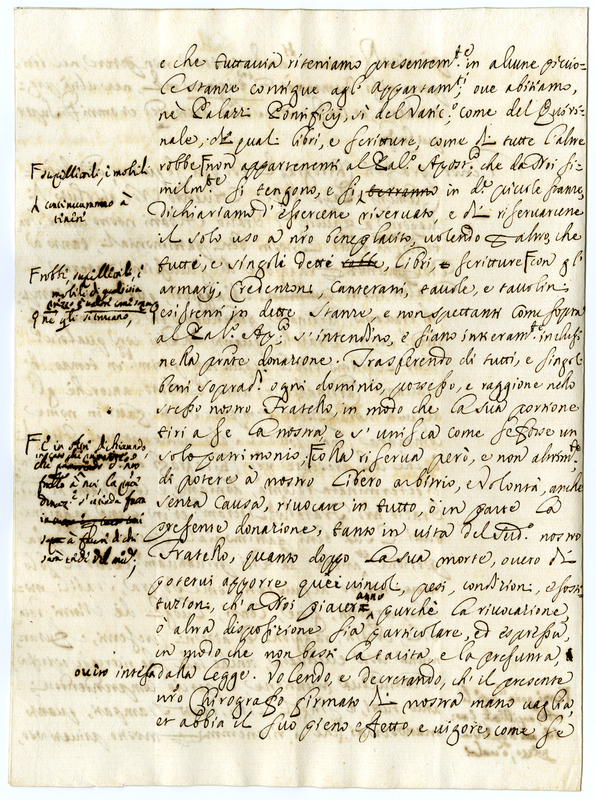 e che tuttavia riteniamo presentem.te in alcune piccio-
le stanze contigue agl' appartam.ti, ove abitiamo,
nè Palazzi Pontificj, sì del Vatic.o, come del Quiri-
nale, qual libri, e scritture, come di tutte l'altre
robbe non appartenenti al Pal.o Apos.co, che da Noi si-
milm.te si tengono, e si in d.e picciole stanze,
dichiariamo d'essercene riservato, e di riservarcene
il solo uso a nro beneplacito, volendo altro, che
tutti, e singoli detti libri, e scritture con gl'
armarij, Credenzoni, Canterani, tavole, e tavolin
esistenti in dette stanze, e non spettanti come sopra
al Pal.o Ap.co s'intendino, e siano interam.te inclusi
nella pnte donazione. Trasferendo di tutti, e singoli
beni soprad.i ogni dominio, possesso, e raggione nello
stesso nostro Fratello, in modo che la sua portione
tiri a se la nostra e s'unisca come se fosse un
solo patrimonio, colla riserva però, e non altrim.te
di potere à nostro libero arbitrio, e volontà, anche
senza causa, rivocare in tutto, ò in parte la
presente donazione, tanto in vita del Sud.o nostro
Fratello, quanto doppo la sua morte, overo di
potervi apporre quei vincoli, pesi, condizioni, e sosti-
tuzioni, ch'a Noi piaceranno purchè la rivocazione,
ò altra disposizione sia particolare, ed espressa,
in modo che non basti la tacita, e la presunta,
overo intesa dalla legge. Volendo, e decretando, ch'il presente
nro Chirografo firmato di nostra mano vaglia,
et abbia il suo pieno effetto, e vigore, come se
supellettili, e mobili
continueranno à
tenere
robbe, supellettili, e
mobili di qualsisia
né gli si trovano,
E in oltre dichiarando,
fratello à noi la